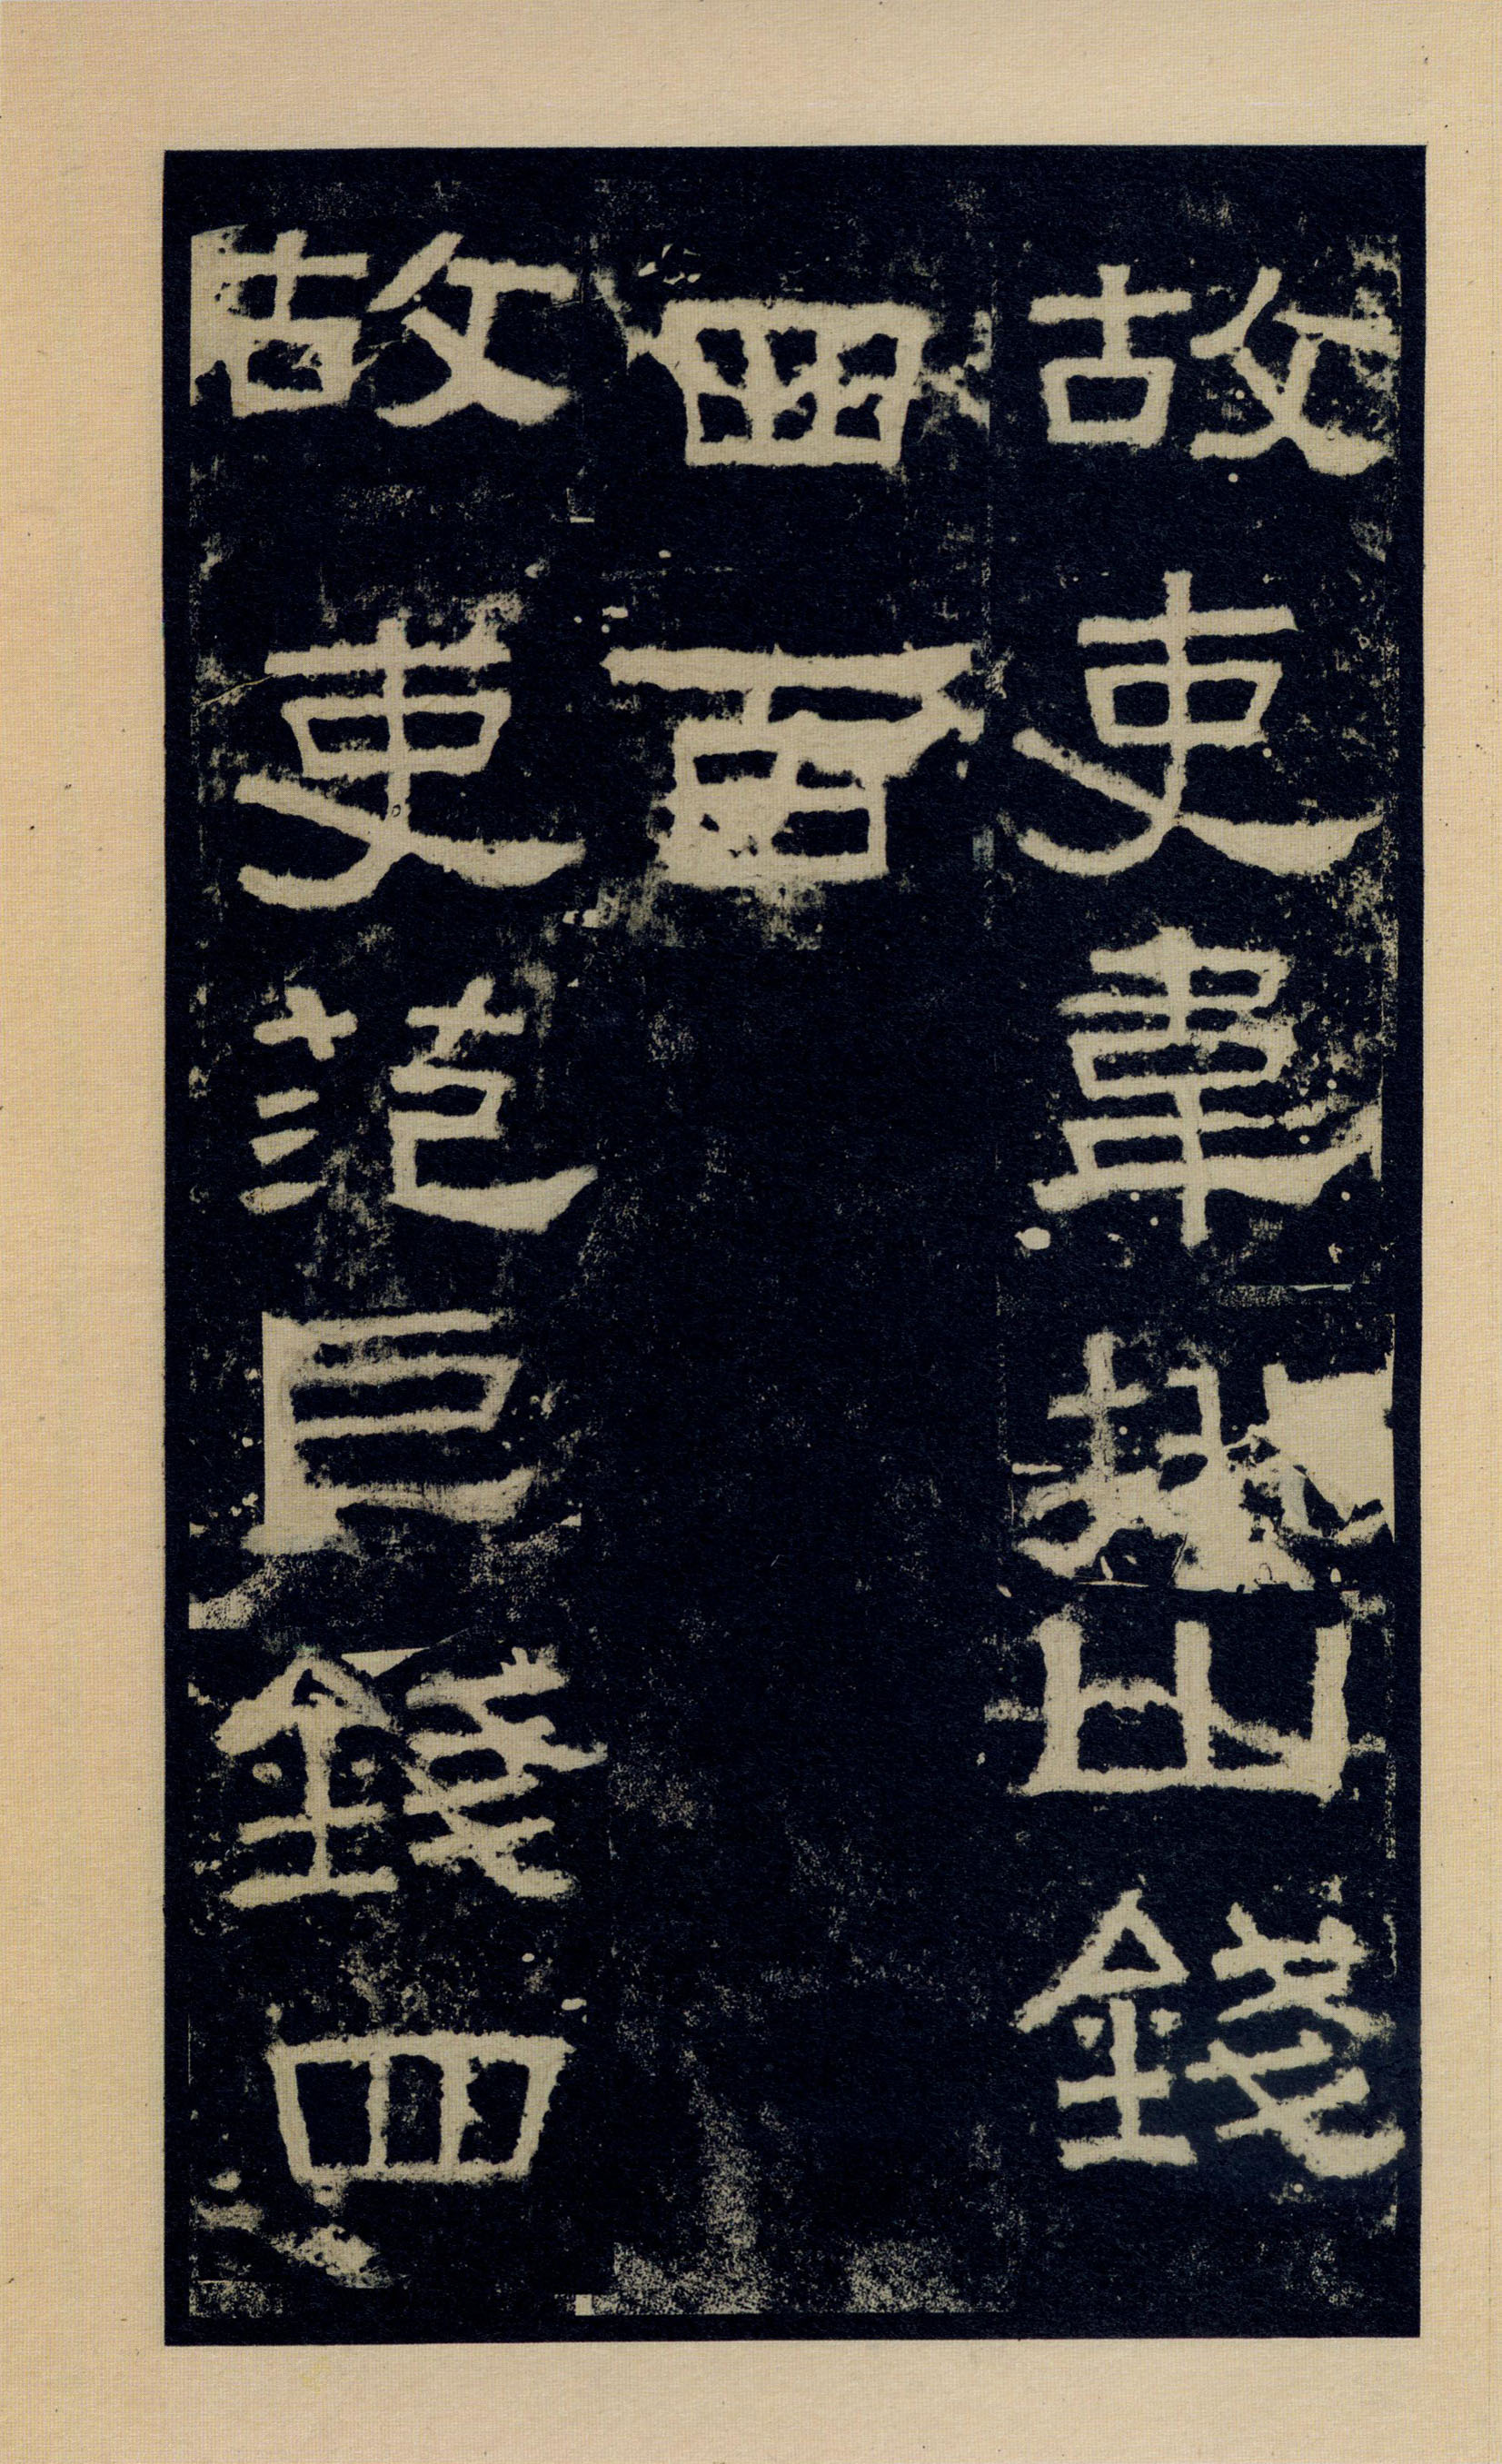 故吏韋山錢
四百
故吏范巨錢四